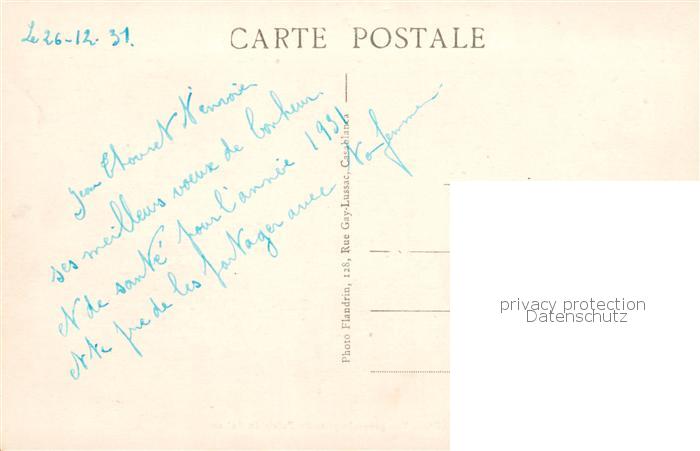 Le 26-12-31.
CARTE POSTALE
Jean Thouret t'envoie
ses meilleurs voeux de bonheur
et de santé pour l'année 1931
et te prie de les partager avec ta femme
Photo Flandrin, 128, Rue Gay-Lussac, Casablanca
privacy protection
Datenschutz